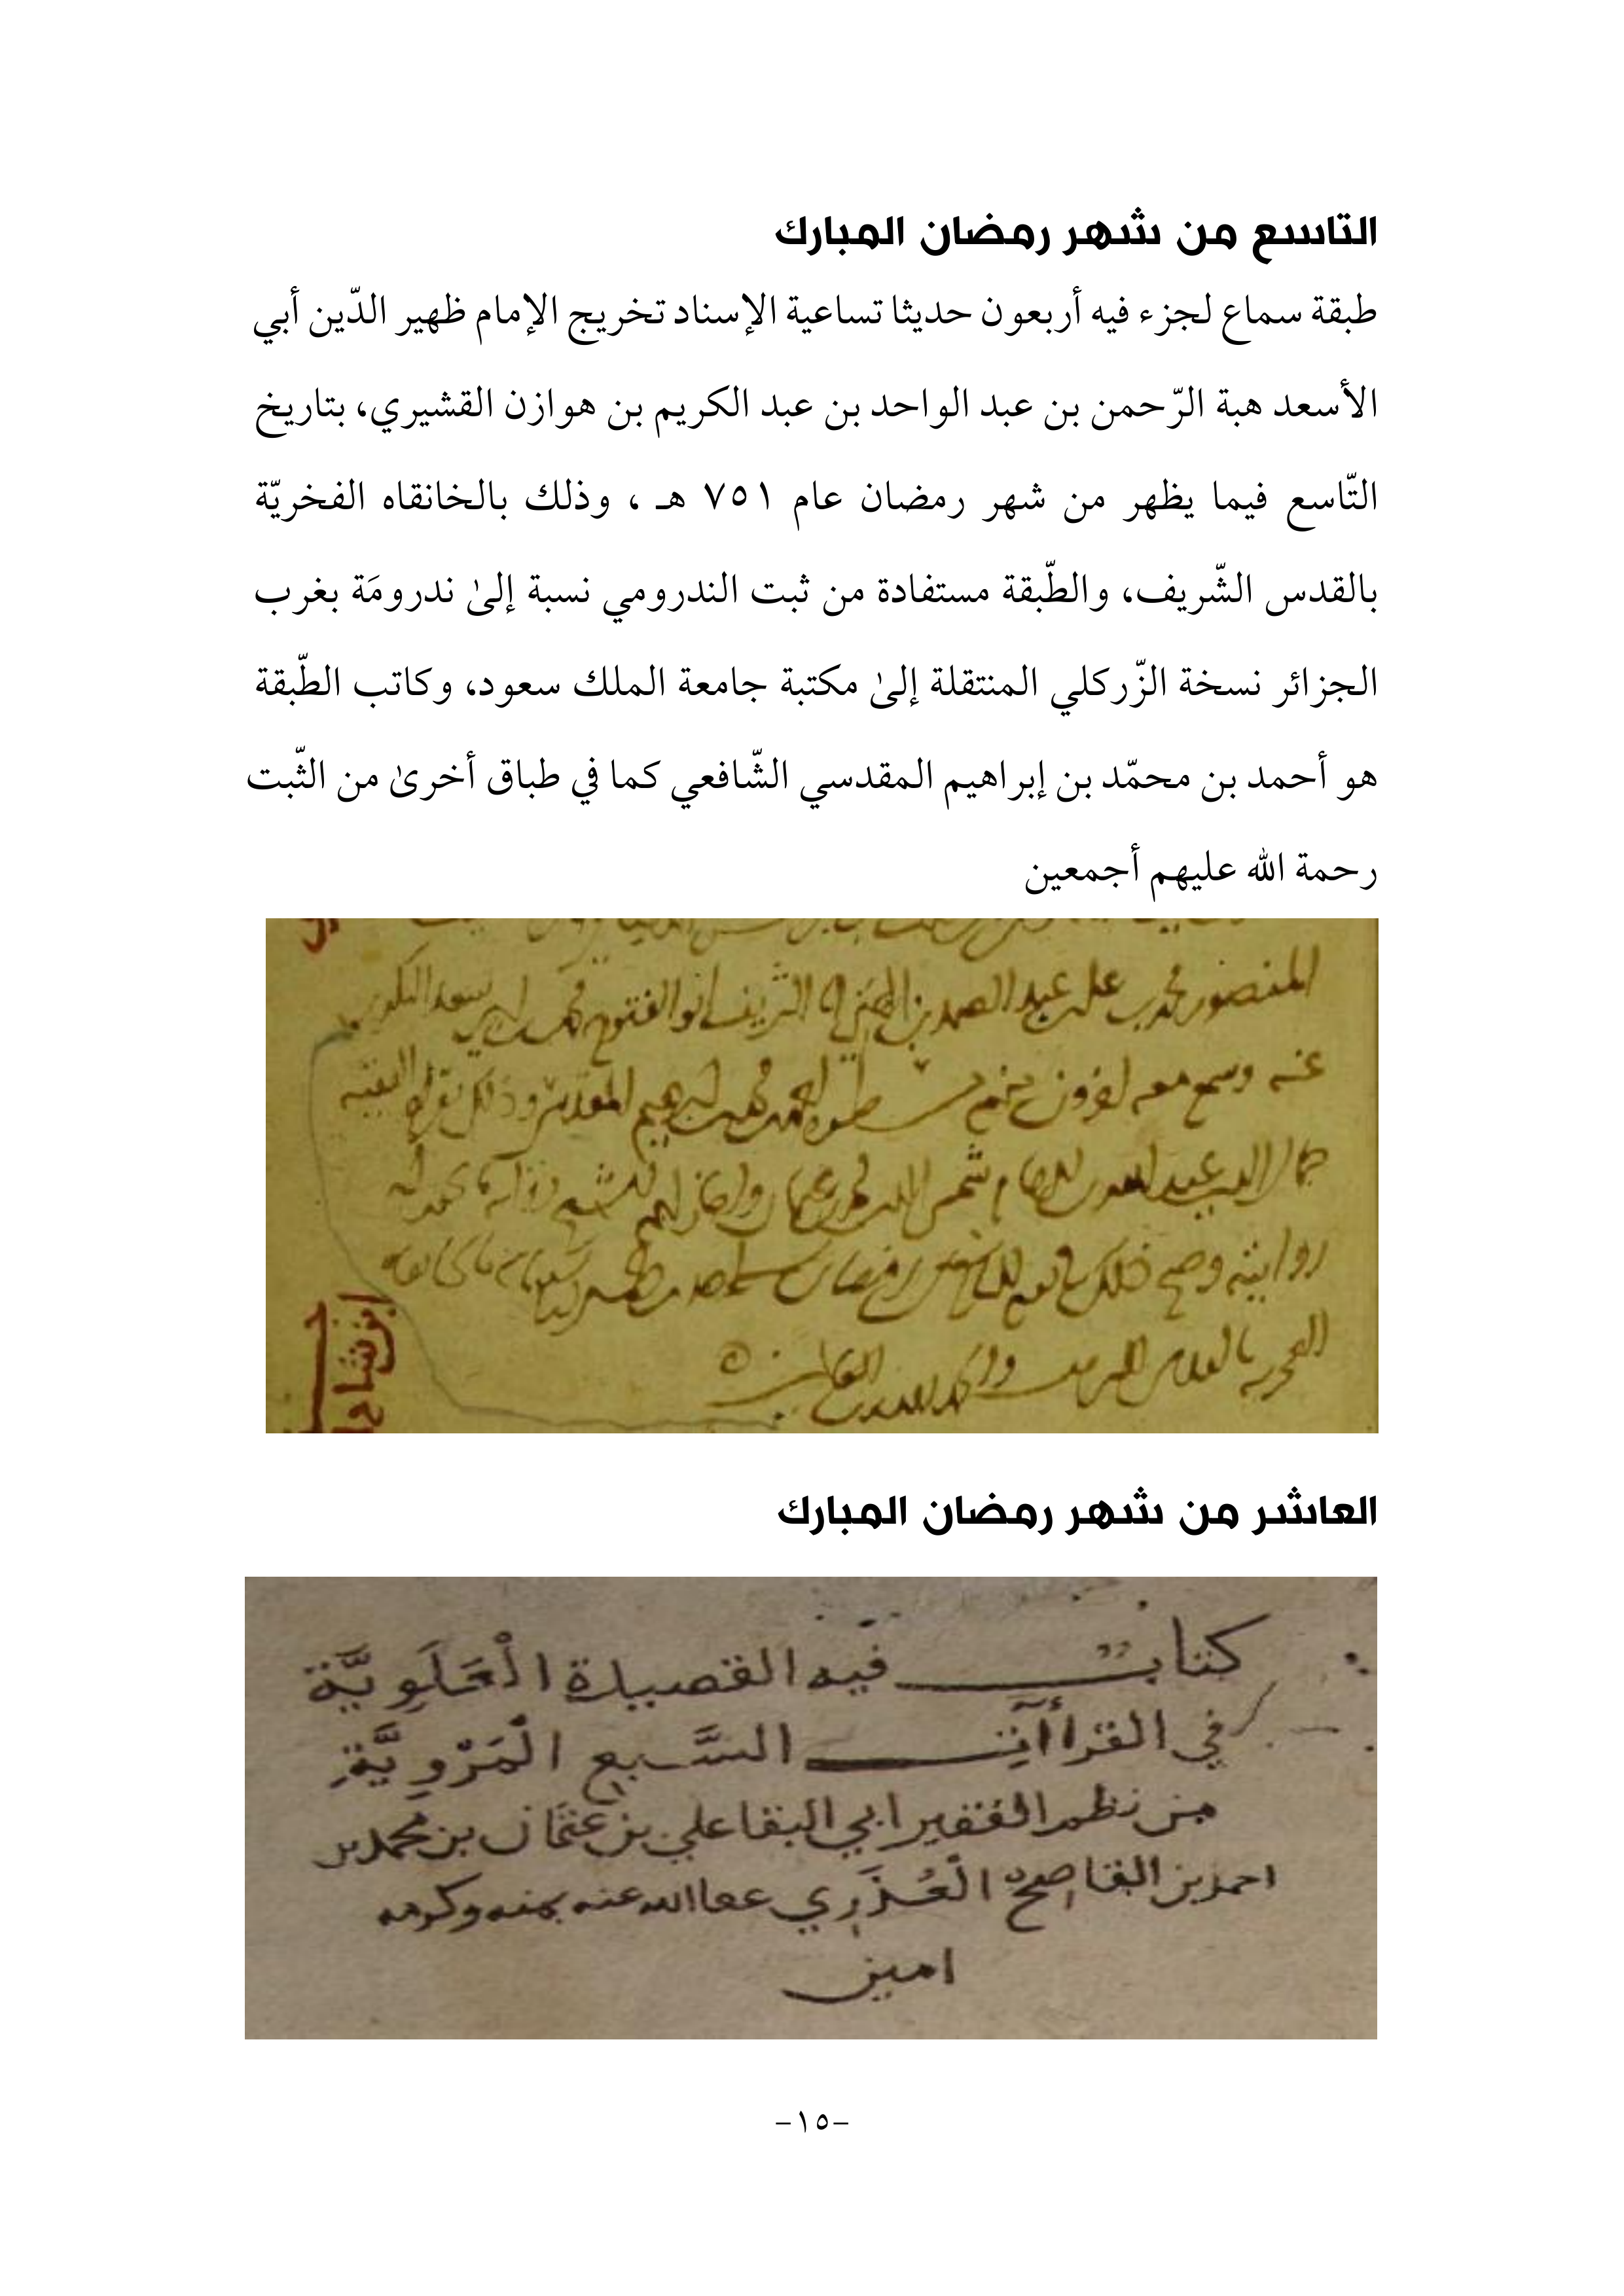 التاسع من شهر رمضان المبارك
طبقة سماع لجزء فيه أربعون حديثا تساعية الإسناد تخريج الإمام ظهير الدّين أبي
الأسعد هبة الرّحمن بن عبد الواحد بن عبد الكريم بن هوازن القشيري، بتاريخ
التّاسع فيما يظهر من شهر رمضان عام ٧٥١ هـ ، وذلك بالخانقاه الفخريّة
بالقدس الشّريف، والطّبقة مستفادة من ثبت الندرومي نسبة إلىٰ ندرومَة بغرب
الجزائر نسخة الزّركلي المنتقلة إلىٰ مكتبة جامعة الملك سعود، وكاتب الطّبقة
هو أحمد بن محمّد بن إبراهيم المقدسي الشّافعي كما في طباق أخرىٰ من الثّبت
رحمة الله عليهم أجمعين
عنه وسمع معه
روايته وصح ذلك
العاشر من شهر رمضان المبارك
كتاب فيه القصيدة الْعَلَوِيَّة
في القراآت السَّبع الْمَرْوِيَّةِ
من نظم الفقير ابي البقا علي بن عثمان بن محمد بن
احمد بن القاصح الْعُذَرِي عفا الله عنه بمنه وكرمه
امين
-١٥-